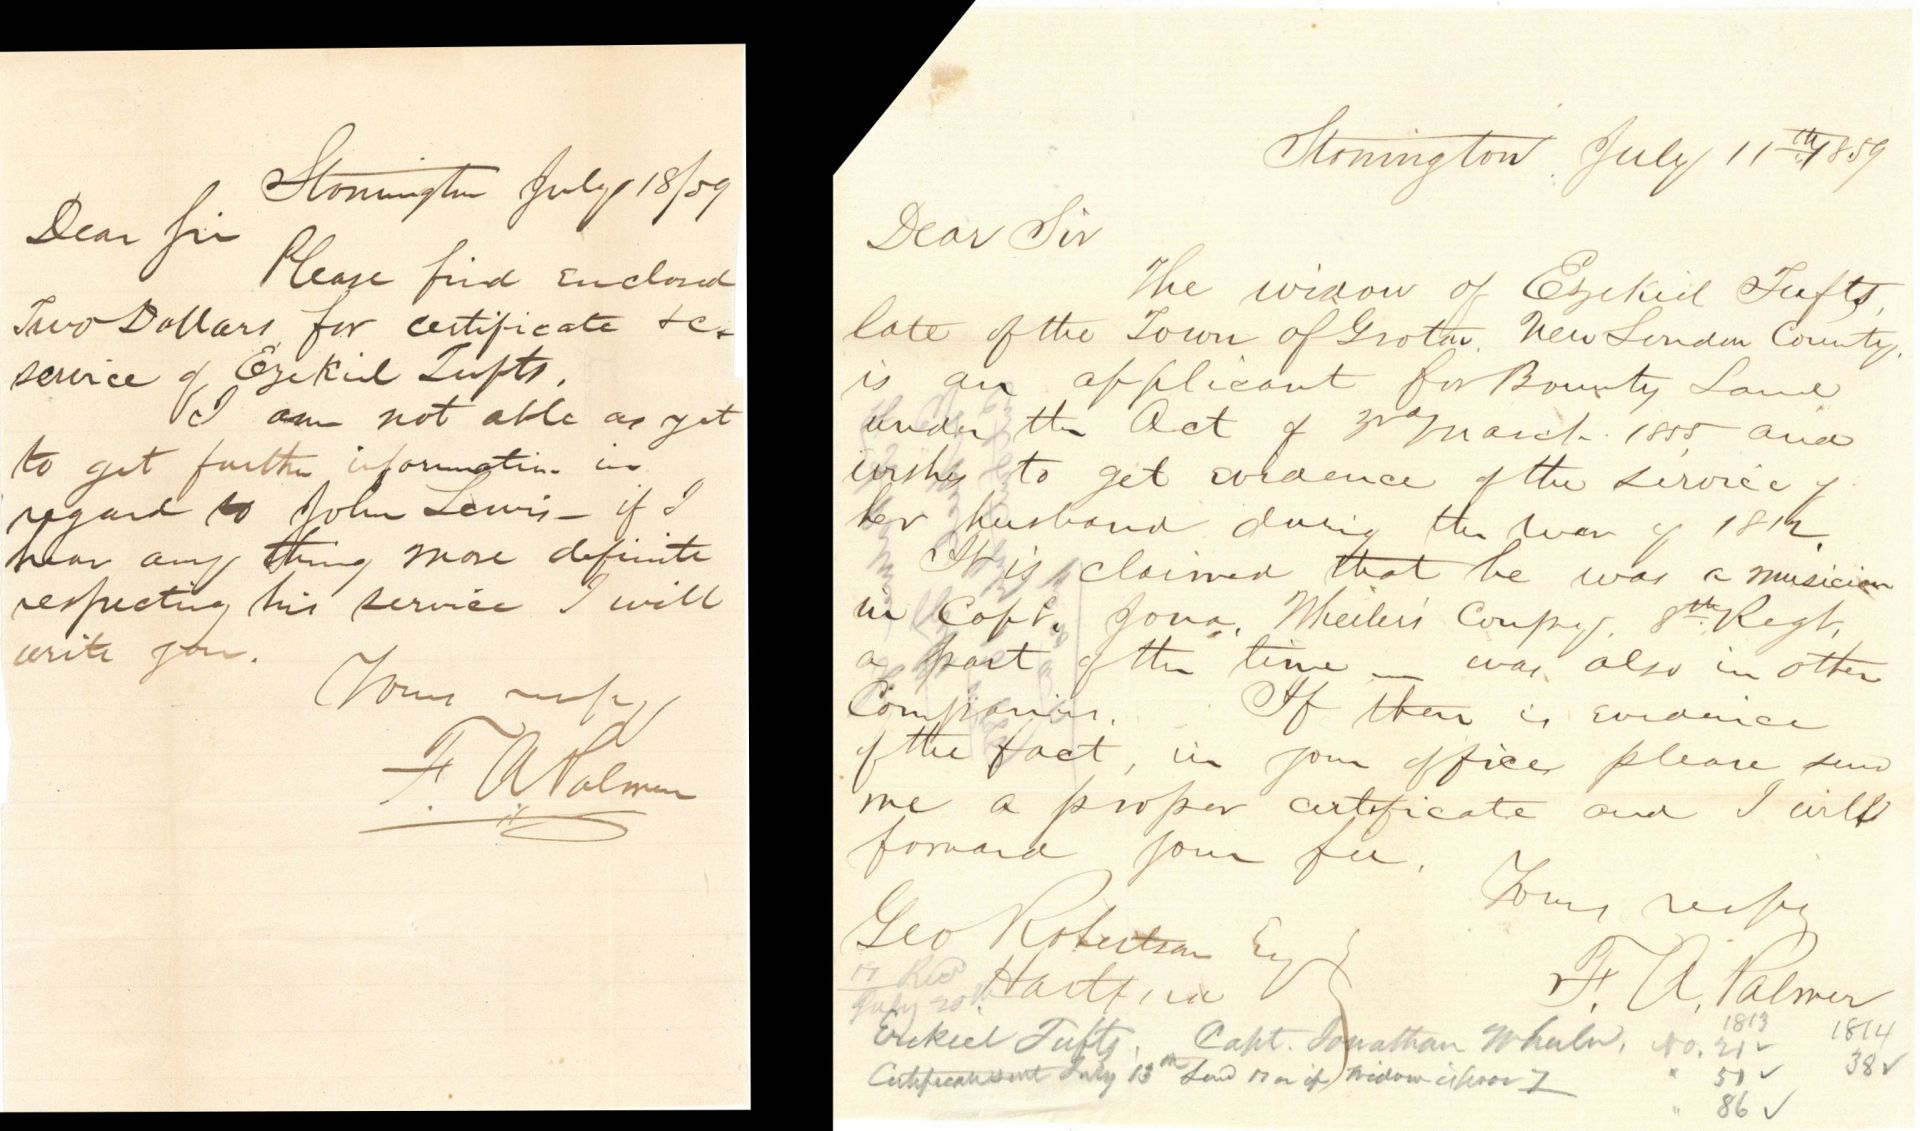 Stonington July 18/59
Dear Sir
Please find enclosed
Two Dollars for certificate &c.
service of Ezekiel Tufts.
I am not able as yet
to get further information in
regard to John Lewis - if I
hear any thing more definite
respecting his service I will
write you.
Yours resp,
F. A Palmer
Stonington July 11th 1859
Dear Sir
The widow of Ezekiel Tufts,
late of the Town of Groton. New London County,
is an applicant for Bounty Land
under the Act of 3rd March 1855 and
wishes to get evidence of the service of
her husband during the war of 1812.
It is claimed that he was a musician
in Capt. Jona. Wheeler's Compy. 8th Regt.
a part of the time - was also in other
Companies. If there is evidence
of the fact, in your office, please send
me a proper certificate and I will
forward your fee.
Yours respy
Geo Robertson Esq
Hartford
F. A. Palmer
Recd
July 20th
Ezekiel Tufts, Capt. Jonathan Wheeler, No. 1813 1814
21 ✓ 38 ✓
Certificate sent July 13th Send if widow is poor
" 51 ✓
" 86 ✓